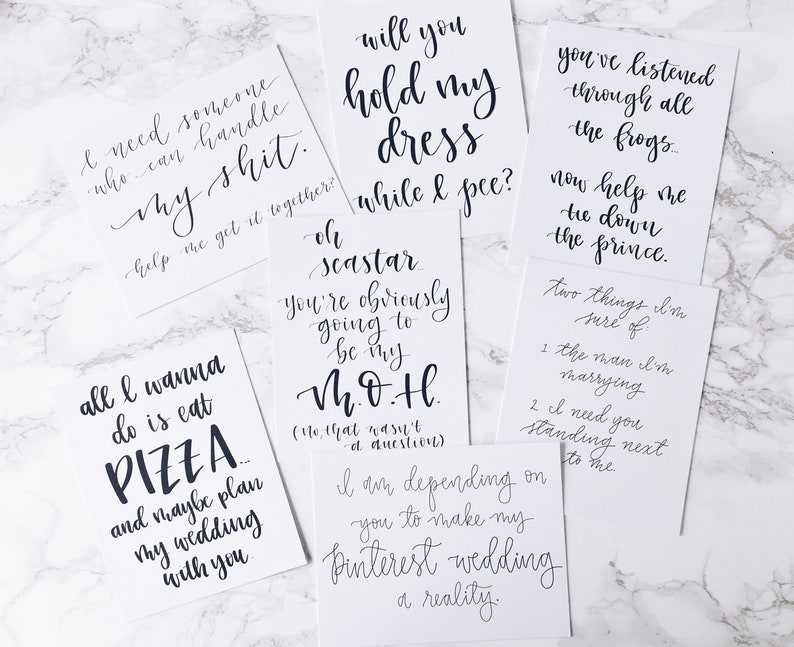 I need someone
who can handle
my shit.
help me get it together?
will you
hold my
dress
while I pee?
you've listened
through all
the frogs...
now help me
tie down
the prince.
oh
seastar...
you're obviously
going to
be my
M.O.H.
(no, that wasn't
a question)
two things I'm
sure of:
1 the man I'm
marrying
2 I need you
standing next
to me.
all I wanna
do is eat
PIZZA...
and maybe plan
my wedding
with you.
I am depending on
you to make my
pinterest wedding
a reality.